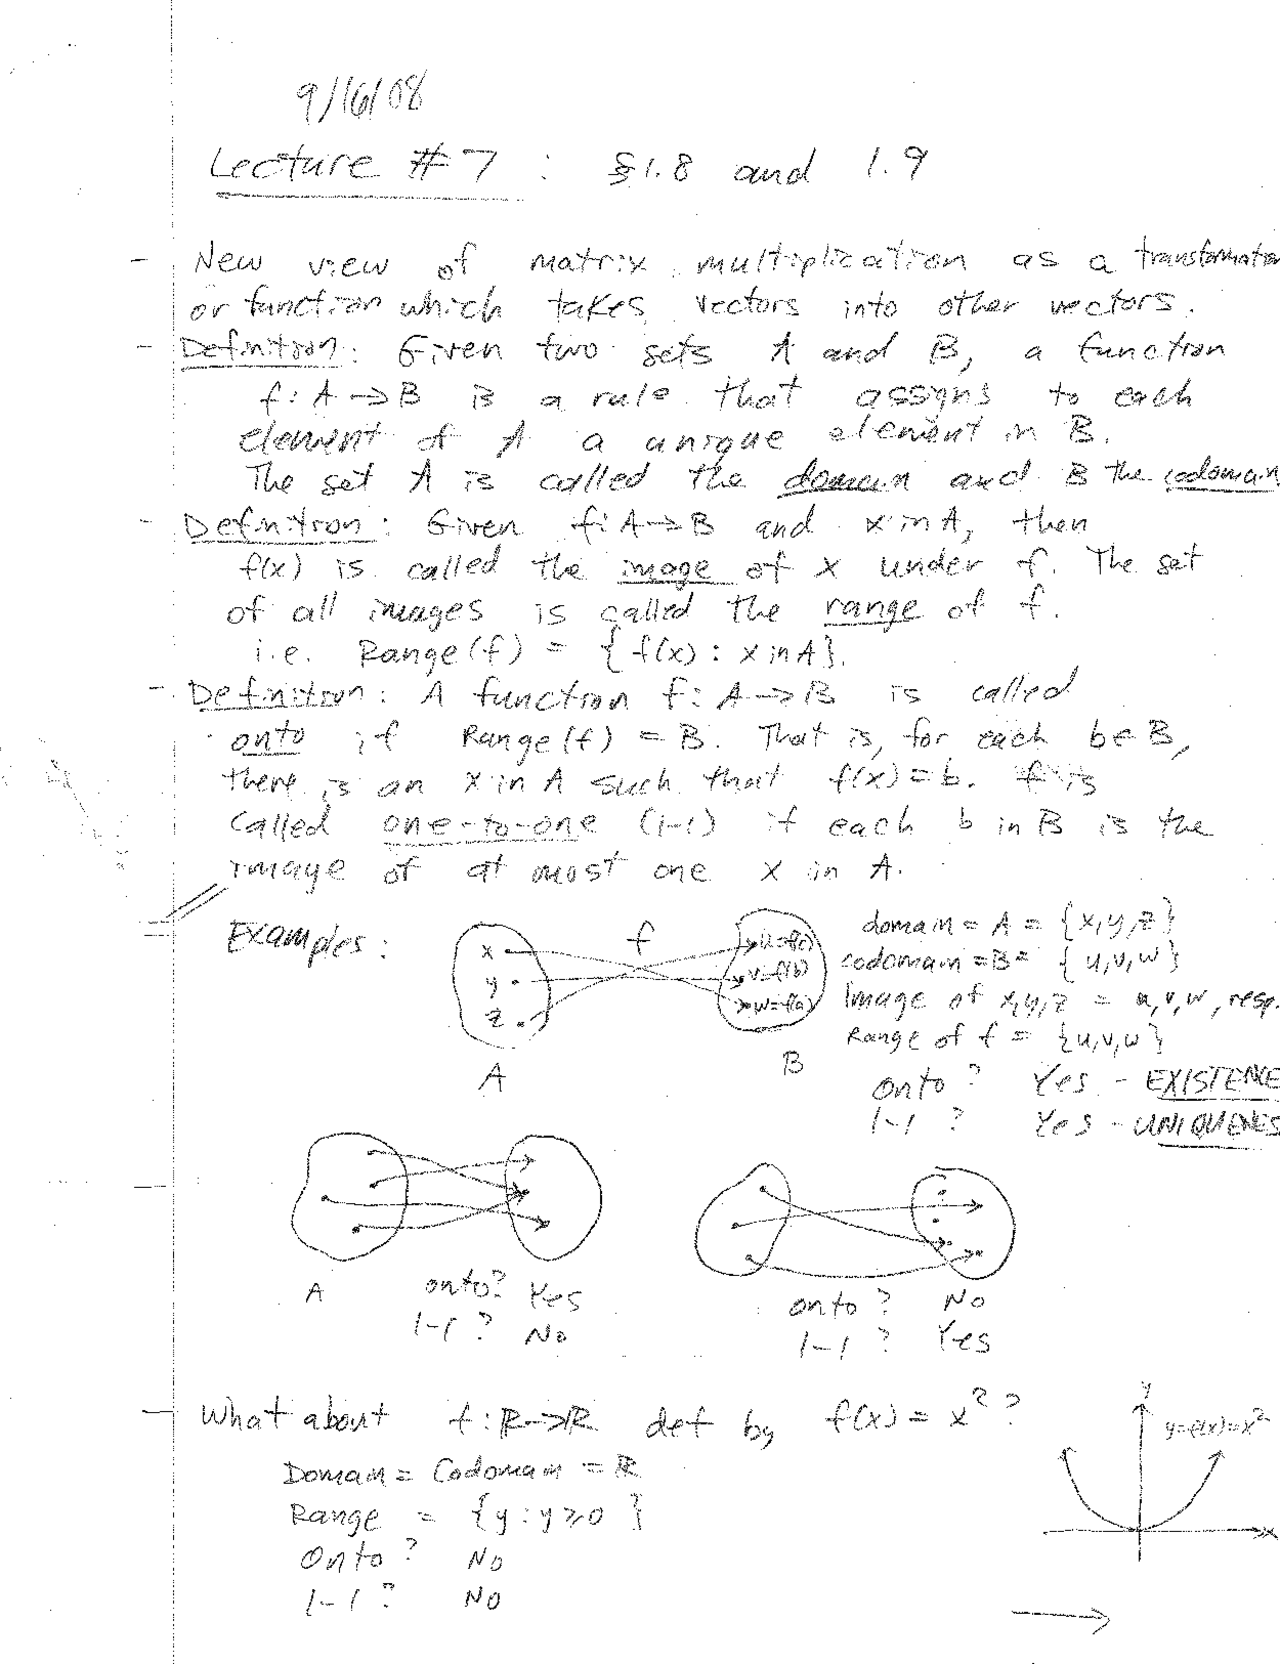 9/16/08
Lecture #7 : §1.8 and 1.9
- New view of matrix multiplication as a transformation
or function which takes vectors into other vectors.
- Definition: Given two sets A and B, a function
f: A → B is a rule that assigns to each
element of A a unique element in B.
The set A is called the domain and B the codomain
- Definition: Given f: A → B and x in A, then
f(x) is called the image of x under f. The set
of all images is called the range of f.
i.e. Range(f) = {f(x) : x in A}.
- Definition: A function f: A → B is called
onto if Range(f) = B. That is, for each b ∈ B,
there is an x in A such that f(x) = b. f is
called one-to-one (1-1) if each b in B is the
image of at most one x in A.
Examples:
x
y
z
A
f
v=f(b)
w=f(a)
B
domain = A = {x,y,z}
codomain = B = {u,v,w}
Image of x,y,z = u,v,w, resp.
Range of f = {u,v,w}
onto? Yes - EXISTENCE
1-1 ? Yes - UNIQUENES
A
onto? Yes
1-1 ? No
onto ? No
1-1 ? Yes
- What about f: ℝ → ℝ def by f(x) = x² ?
Domain = Codomain = ℝ
Range = {y : y ≥ 0 }
Onto ? No
1-1 ? No
y
y=f(x)=x²
x